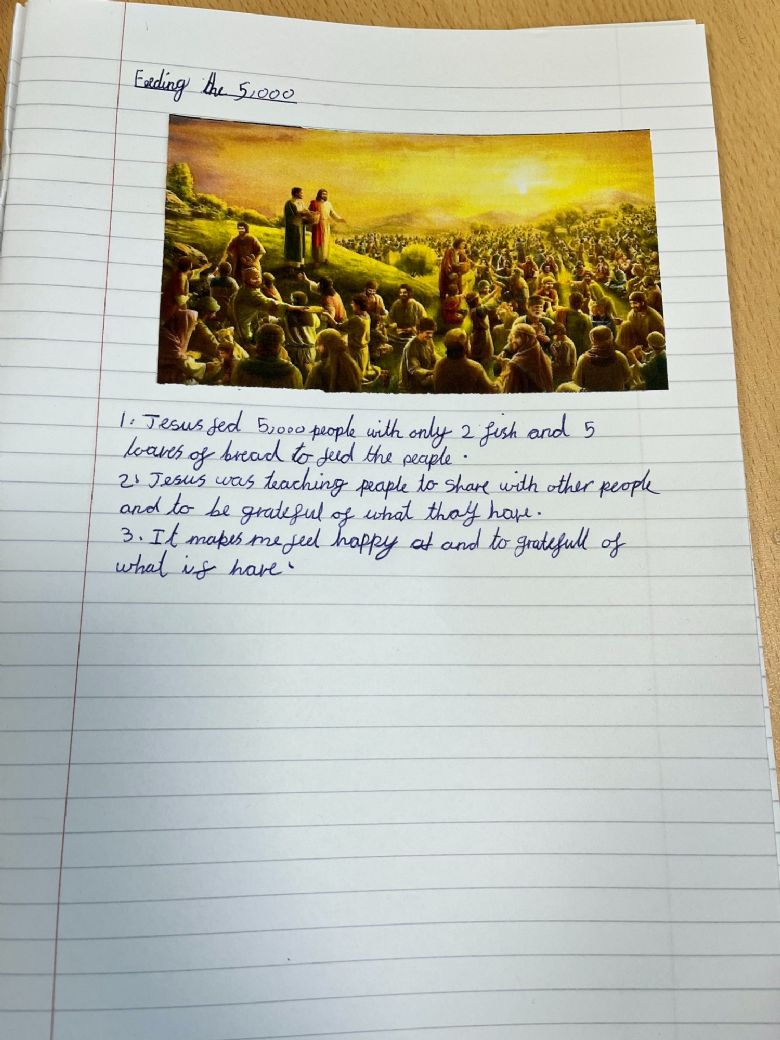 Feeding the 5,000
1. Jesus fed 5,000 people with only 2 fish and 5
loaves of bread to feed the people.
2. Jesus was teaching people to share with other people
and to be grateful of what thay have.
3. It makes me feel happy at and to gratefull of
what is have.